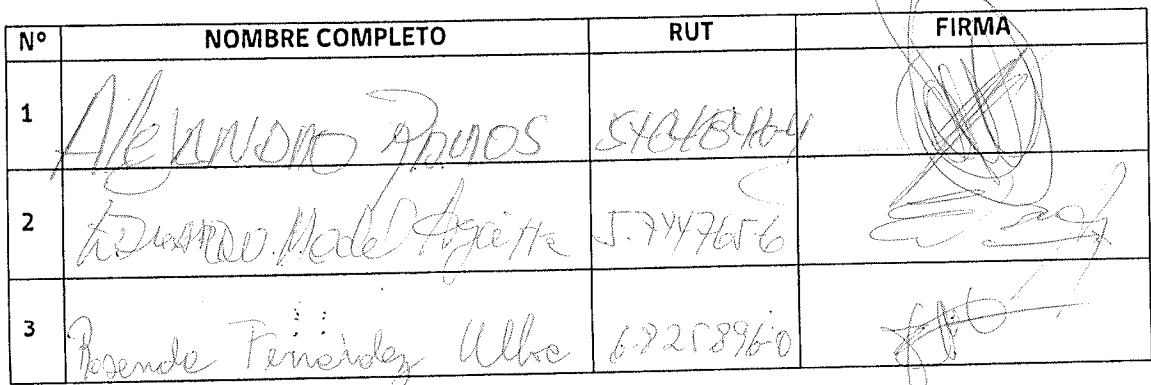 Nº NOMBRE COMPLETO RUT FIRMA
1 Alejandro Ramos
2 Eduardo. 5.744765-6
3 Rosendo Fernández Ulloa 6.9258960